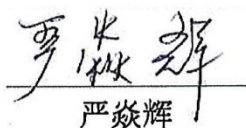 严焱辉
严焱辉